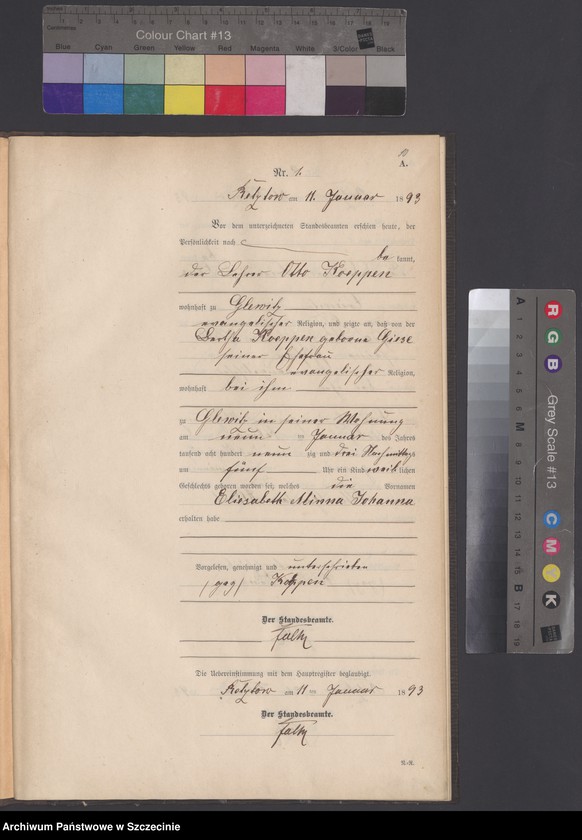 Colour Chart #13
Blue Cyan Green Yellow Red Magenta White 3/Color Black
A.
Nr. 1.
am 11. Januar 1893
Vor dem unterzeichneten Standesbeamten erschien heute, der
Persönlichkeit nach
be kannt,
der Lehrer Otto Koeppen
wohnhaft zu Glewitz
evangelischer Religion, und zeigte an, daß von der
Bertha Koeppen geborene Giese
seiner Ehefrau
evangelischer Religion,
wohnhaft bei ihm
zu Glewitz in seiner Wohnung
am neun ten Januar des Jahres
tausend acht hundert neun zig und drei Nachmittags
um fünf Uhr ein Kind weib lichen
Geschlechts geboren worden sei, welches die Vornamen
Eliesabeth Minna Johanna
erhalten habe
Vorgelesen, genehmigt und unterschrieben
(gez) Köppen
Der Standesbeamte.
Falk
Die Uebereinstimmung mit dem Hauptregister beglaubigt.
am 11 ten Januar 1893
Der Standesbeamte.
Falk
Grey Scale #13
A 1 2 3 4 5 6 M 8 9 10 11 12 13 14 15 B 17 18 19
R G B C M Y K
Archiwum Państwowe w Szczecinie